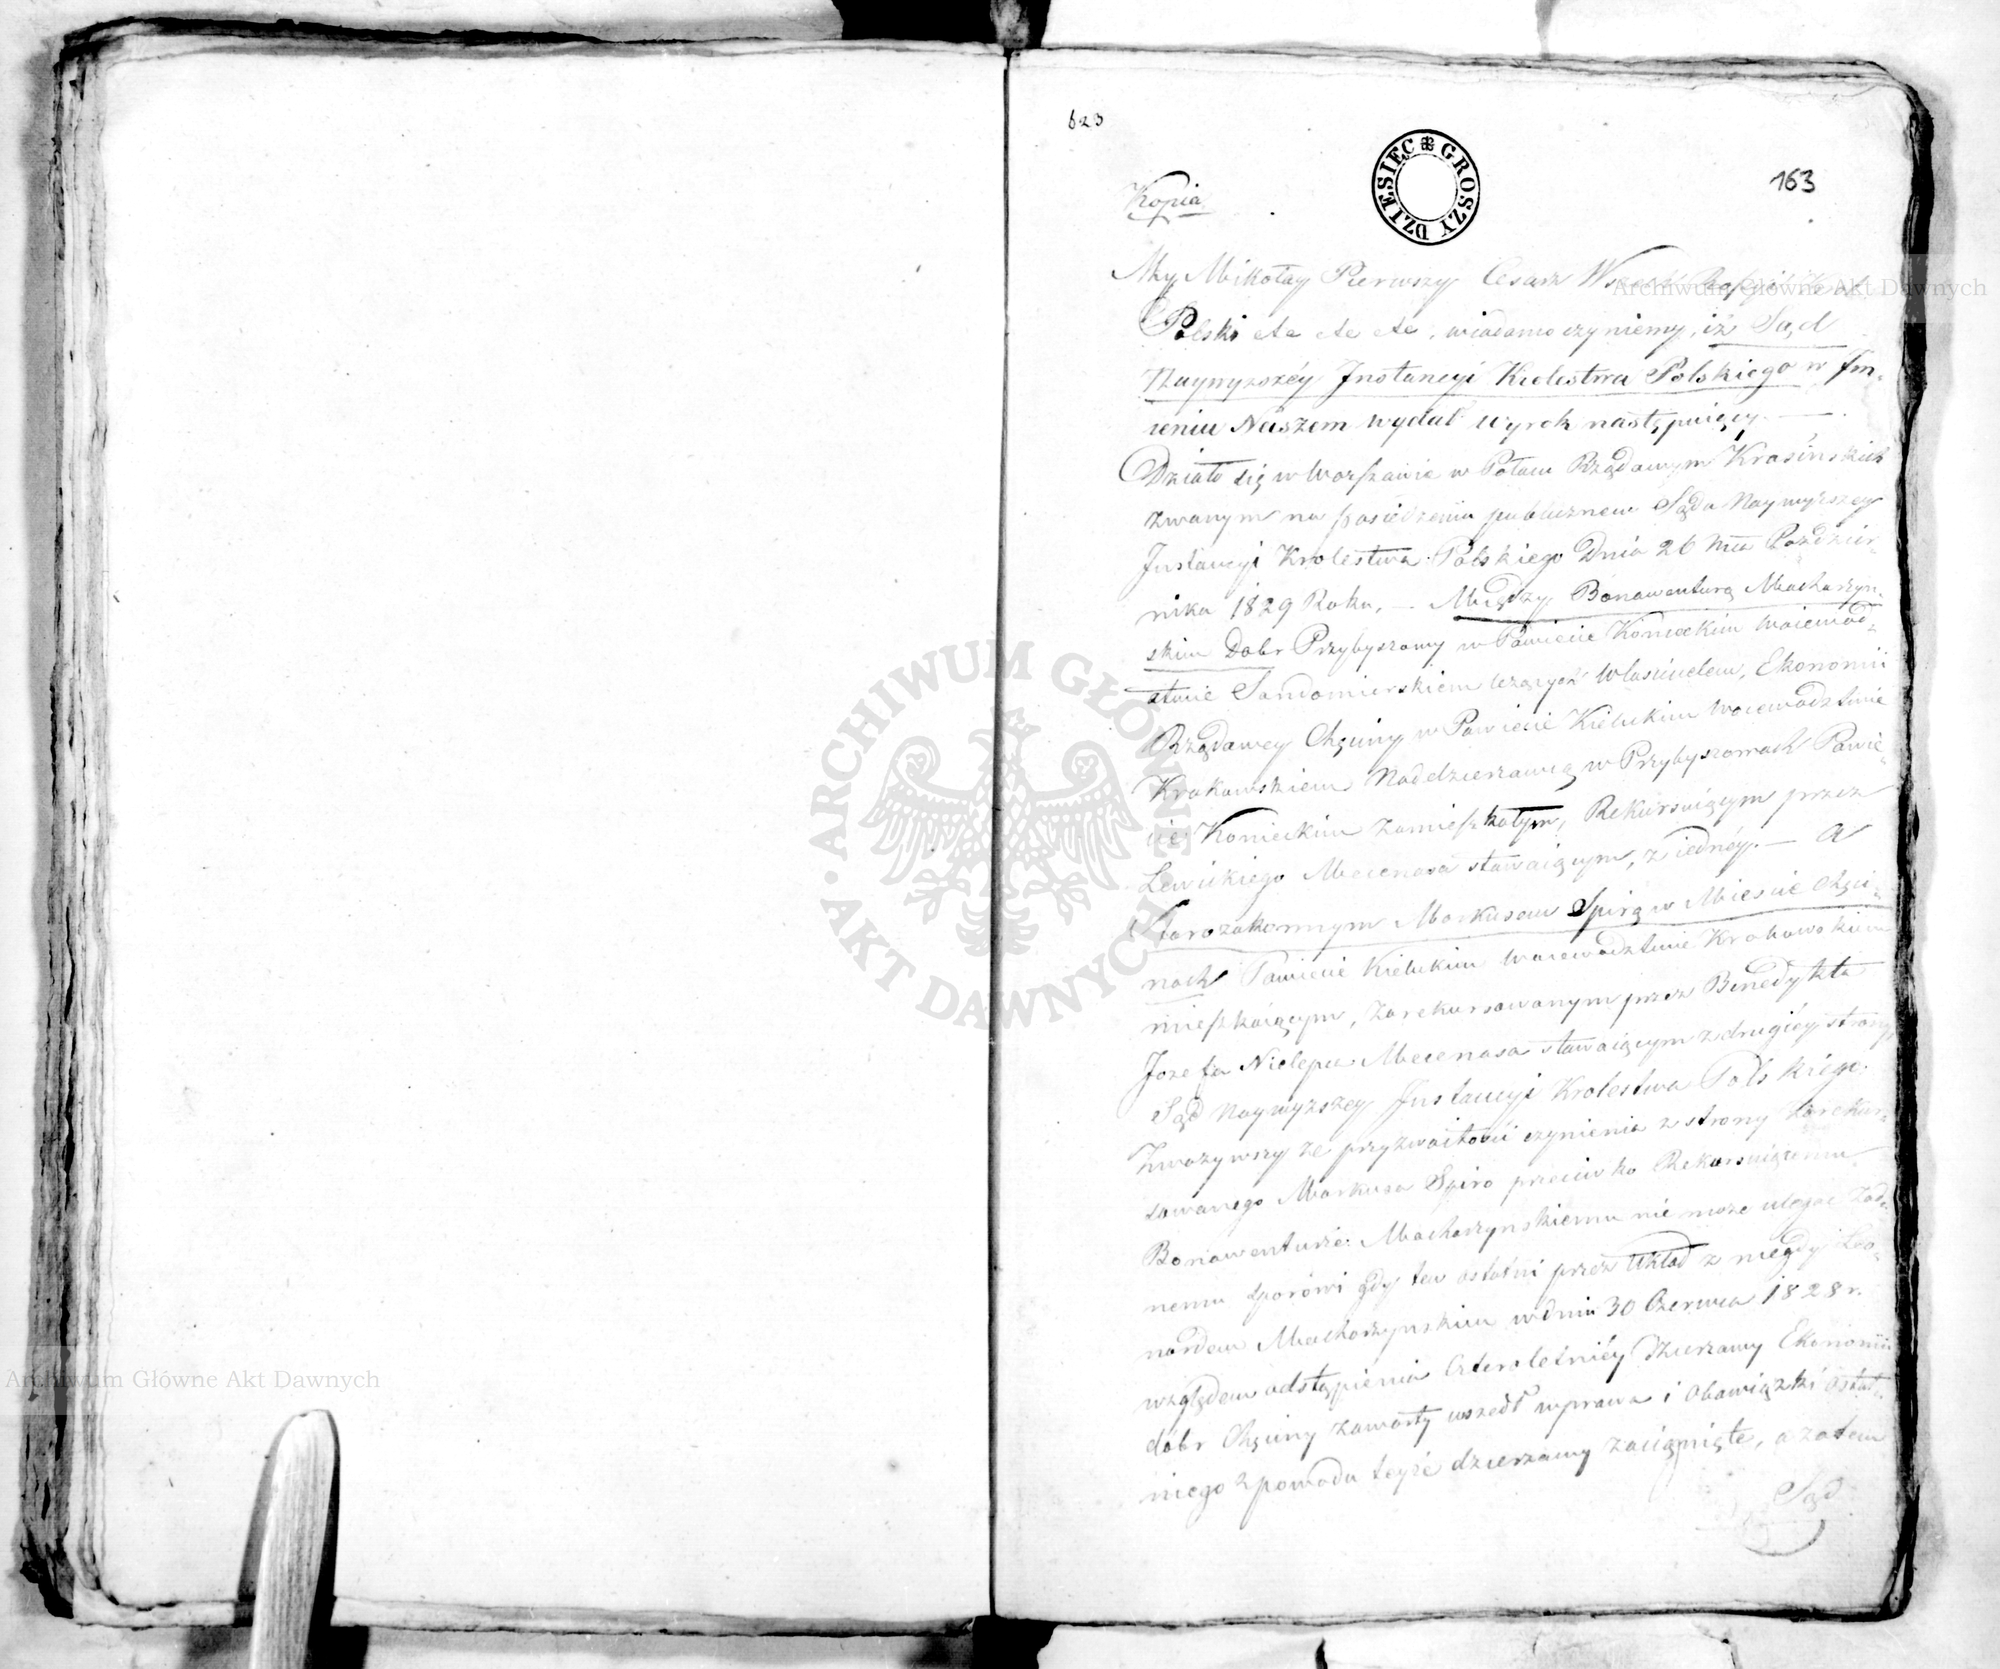 623
DZIESIĘC GROSZY
163
Kopia
My Mikołay Pierwszy Cesarz Wszech Rossyi Król
Polski etc etc etc, wiadomo czyniemy, iż Sąd
Naywyższéy Instancyi Królestwa Polskiego w Im-
ieniu Naszem wydał wyrok następuiący. —
Działo się w Warszawie w Pałacu Rządowym Krasińskich
zwanym na posiedzeniu publicznem Sądu Naywyższey
Instancyi Krolestwa Polskiego Dnia 26 Mca Paździer-
nika 1829 Roku, — Między Bonawenturą Machorzyn-
skim Dobr Przybyszowy w Powiecie Konieckim Woiewód-
ztwie Sandomierskiem leżących Właścicielem, Ekonomii
Rządowey Chęciny w Powiecie Kieleckim Woiewodztwie
Krakowskiem Naddzierżawcą w Przybyszowach Powie-
cie Konieckim zamieszkałym, Rekursuiącym przez
Lewickiego Mecenasa stawaiącym, z iednéy. — A
Starozakonnym Markusem Spirą w Mieście Chęci-
nach Powiecie Kieleckim Woiewodztwie Krakowskiem
mieszkaiącym, zarekursowanym przez Benedykta
Jozefa Niełepca Mecenasa stawaiącym z drugiéy strony,
Sąd Naywyższey Instancyi Krolestwa Polskiego.
Zważywszy że przyzwoitości czynienia z strony zarekur-
sowanego Markusa Spiro przeciwko Rekursuiącemu
Bonawenturze Machorzynskiemu nie może ulegać żad-
nemu sporowi gdy ten ostatni przez Układ z niegdy Leo-
nardem Machorzynskim w dniu 30 Czerwca 1828 r.
względem odstąpienia czteroletniéy Dzierżawy Ekonomii
dóbr Chęciny zawarty wszedł w prawa i obowiązki ostat-
niego z powodu teyże dzierżawy zaciągnięte, a zatem
Sąd
Archiwum Główne Akt Dawnych
ARCHIWUM GŁÓWNE AKT DAWNYCH
Archiwum Główne Akt Dawnych